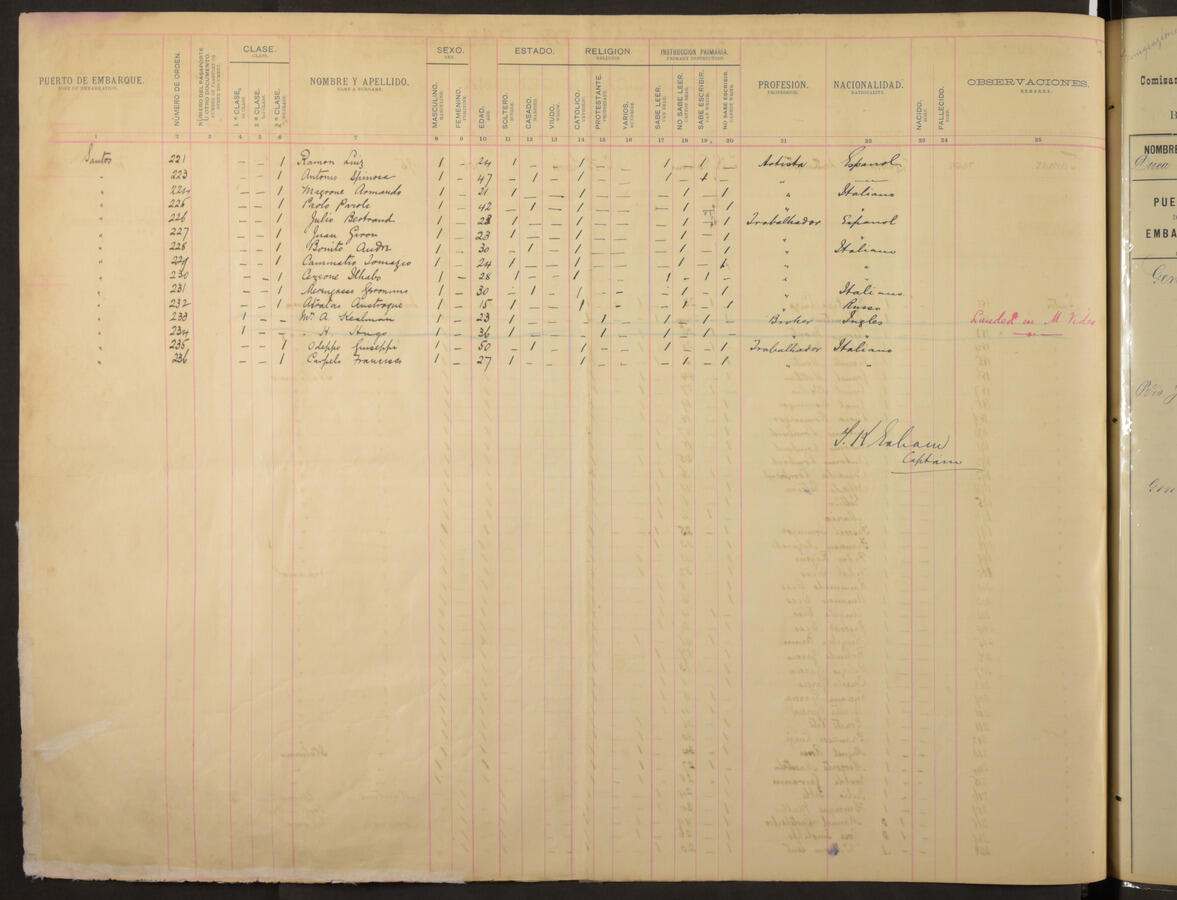 CLASE.
CLASS.
SEXO.
SEX.
ESTADO.
RELIGION.
RELIGION.
INSTRUCCION PRIMARIA.
PRIMARY INSTRUCTION.
PUERTO DE EMBARQUE.
PORT OF EMBARKATION.
NÚMERO DE ORDEN.
NÚMERO DEL PASAPORTE
U OTRO DOCUMENTO.
1ª CLASE.
2ª CLASE.
3ª CLASE.
NOMBRE Y APELLIDO.
NAME & SURNAME.
MASCULINO.
FEMENINO.
EDAD.
SOLTERO.
CASADO.
VIUDO.
CATOLICO.
PROTESTANTE.
VARIOS.
SABE LEER.
NO SABE LEER.
SABE ESCRIBIR.
NO SABE ESCRIBIR.
PROFESION.
PROFESSION.
NACIONALIDAD.
NATIONALITY.
NACIDO.
FALLECIDO.
OBSERVACIONES.
REMARKS.
1 2 3 4 5 6 7 8 9 10 11 12 13 14 15 16 17 18 19 20 21 22 23 24 25
Santos 221 – – 1 Ramon Luiz 1 – 24 1 – – 1 – – 1 – 1 – Artista Espanol
" 223 – – 1 Antonio Spinosa 1 – 47 – 1 – 1 – – 1 – 1 – "
" 224 – – 1 Magrone Armando 1 – 21 1 – – 1 – – – 1 – 1 " Italiano
" 225 – – 1 Paolo Parolo 1 – 42 – 1 – 1 – – – 1 – 1 " "
" 226 – – 1 Julio Bertrand 1 – 23 1 – – 1 – – – 1 – 1 Trabalhador Espanol
" 227 – – 1 Juan Giron 1 – 23 1 – – 1 – – – 1 – 1 " "
" 228 – – 1 Bonito 1 – 30 – 1 – 1 – – – 1 – 1 " Italiano
" 229 – – 1 Tomazeo 1 – 24 1 – – 1 – – – 1 – 1 " "
" 230 – – 1 1 – 28 1 – – 1 – – 1 – 1 – " "
" 231 – – 1 Geronimo 1 – 30 – 1 – 1 – – – 1 – 1 " Italiano
" 232 – – 1 1 – 15 1 – – 1 – – – 1 – 1 " Russo
" 233 1 – – Mr A. Stealman 1 – 23 1 – – – 1 – 1 – 1 – Broker Ingles Landed in M Video
" 234 1 – – " H. Hugo 1 – 36 1 – – – 1 – 1 – 1 – " " "
" 235 – – 1 Odeppo Guiseppi 1 – 50 – 1 – 1 – – 1 – – 1 Trabalhador Italiano
" 236 – – 1 Carpelo Francisco 1 – 27 1 – – 1 – – – 1 – 1 " "
Captain
Comisar
B
NOMBRE
PUE
EMBA